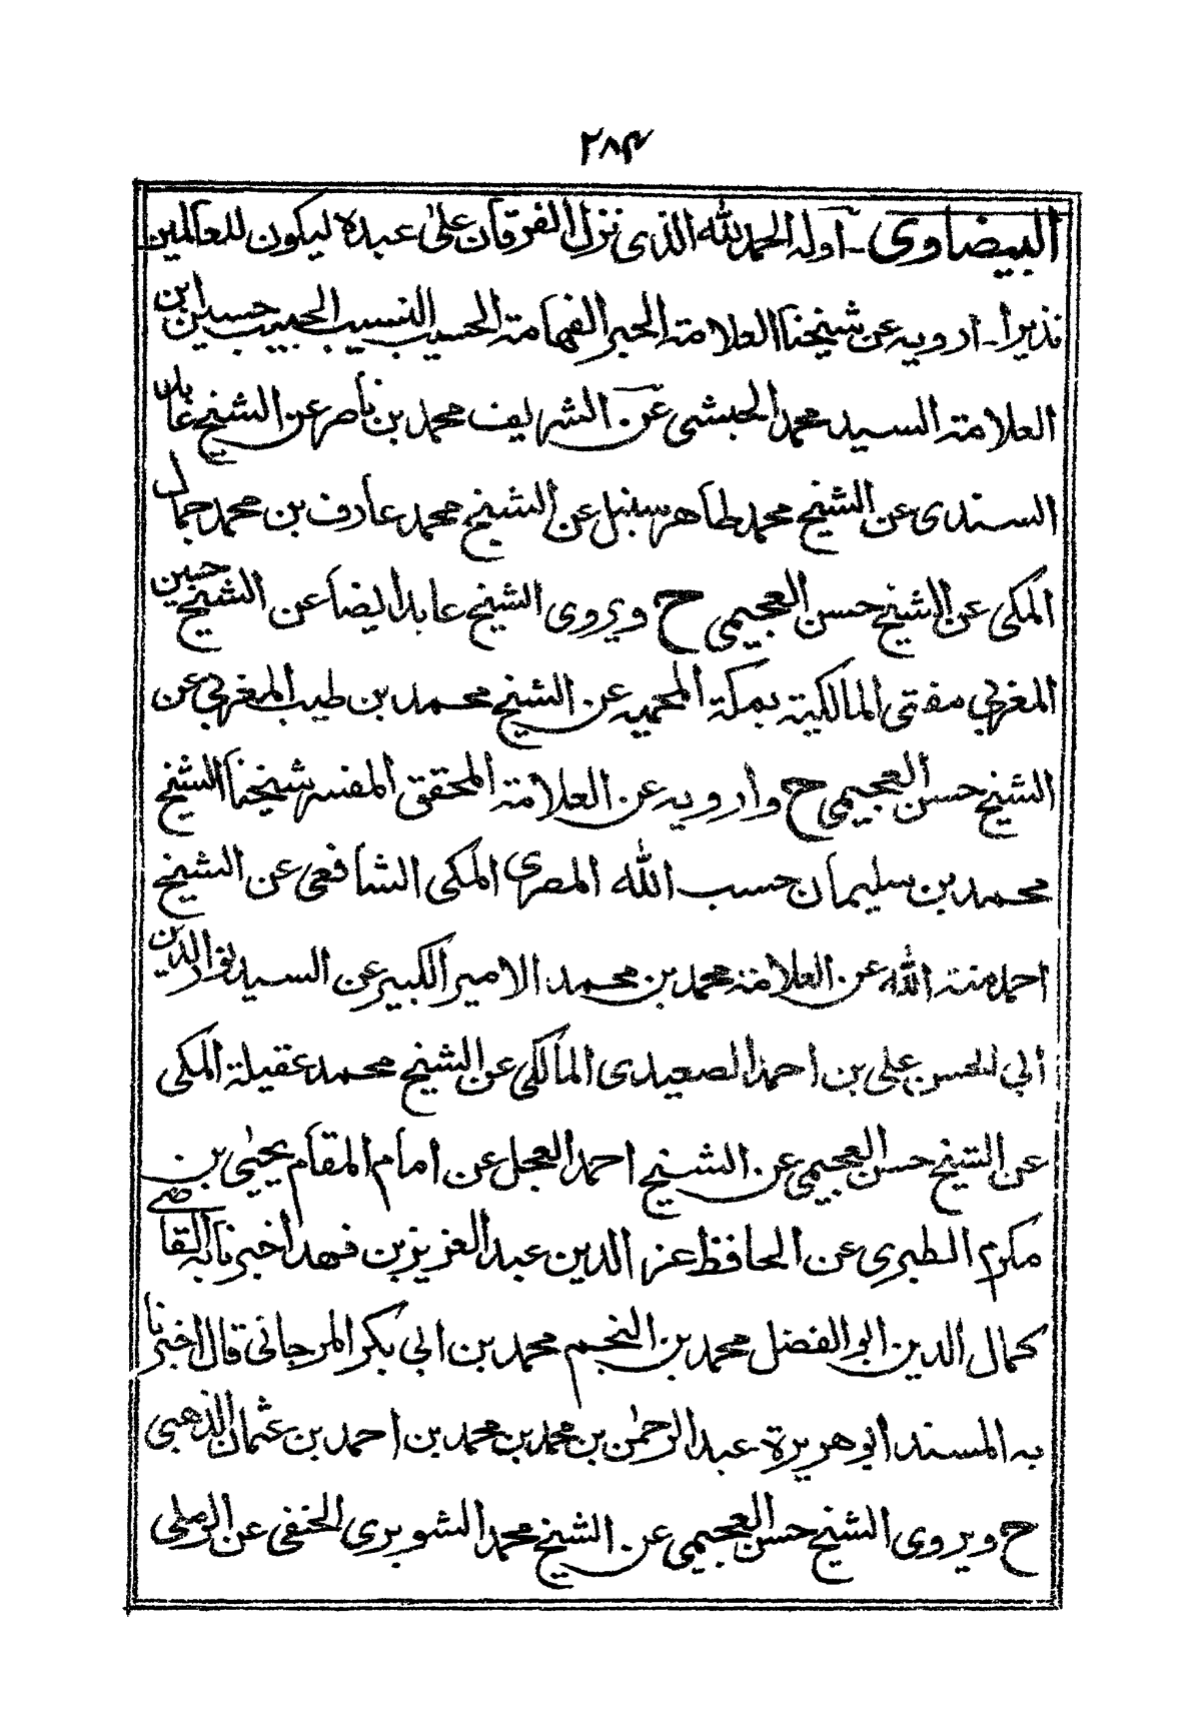 ۲۸۴
البيضاوى - اوله الحمد لله الذى نزل الفرقان على عبده ليكون للعالمين
نذيرا - ارويه عن شيخنا العلامة الحبر الفهامة الحسيب النسيب الحبيب حسين ابن
العلامة السيد محمد الحبشى عن الشريف محمد بن ناصر عن الشيخ عابد
السندى عن الشيخ محمد طاهر سنبل عن الشيخ محمد عارف بن محمد جمال
المكى عن الشيخ حسن العجيمى ح ويروى الشيخ عابد ايضا عن الشيخ حسين
المغربي مفتى المالكية بمكة المحميه عن الشيخ محمد بن طيب المغربي عن
الشيخ حسن العجيمى ح وارويه عن العلامة المحقق المفسر شيخنا الشيخ
محمد بن سليمان حسب الله المصرى المكى الشافعى عن الشيخ
احمد منة الله عن العلامة محمد بن محمد الامير الكبير عن السيد نور الدين
ابي الحسن على بن احمد الصعيدى المالكى عن الشيخ محمد عقيلة المكى
عن الشيخ حسن العجيمى عن الشيخ احمد العجل عن امام المقام يحيى بن
مكرم الطبرى عن الحافظ عز الدين عبد العزيز بن فهد اخبرنا به القاضى
كمال الدين ابو الفضل محمد بن النجم محمد بن ابي بكر المرجانى قال اخبرنا
به المسند ابو هريرة عبد الرحمن بن محمد بن محمد بن احمد بن عثمان الذهبى
ح ويروى الشيخ حسن العجيمى عن الشيخ محمد الشوبرى الحنفى عن الرملى